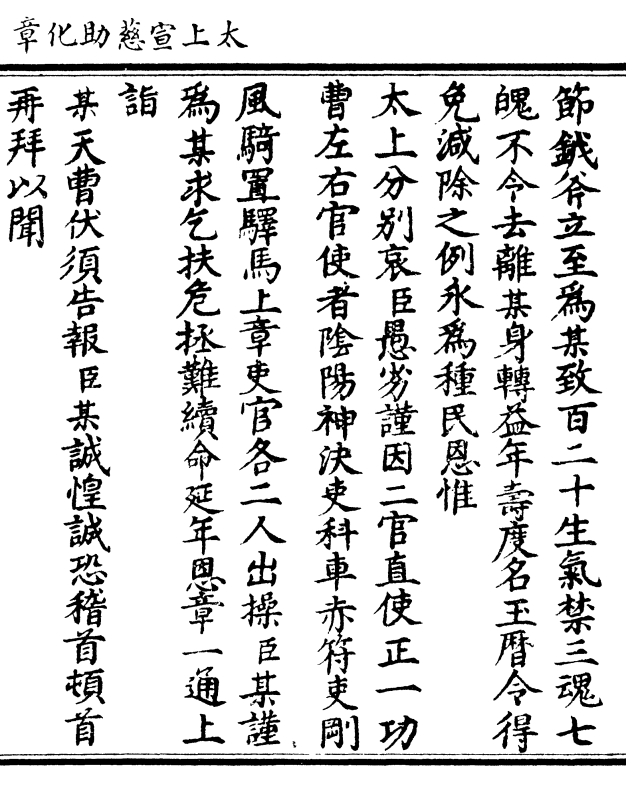 太上宣慈助化章
節鉞斧立至為某致百二十生氣禁三魂七
魄不令去離某身轉益年壽度名玉曆令得
免減除之例永為種民恩惟
太上分別哀臣愚劣謹因二官直使正一功
曹左右官使者陰陽神決吏科車赤符吏剛
風騎置驛馬上章吏官各二人出操臣某謹
為某求乞扶危拯難續命延年恩章一通上
詣
某天曹伏須告報臣某誠惶誠恐稽首頓首
再拜以聞